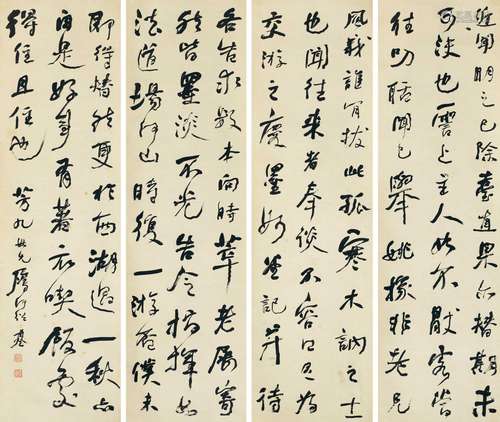 近聞明之已除臺道果亦替期未
可決也霅上主人如不厭客當
往叩聒聞已舉姚掾非老兄
風義誰肯拔此孤寒木訥之士
也聞往來者奉談不容口已為
交游之慶墨妙記并詩
各告求數本向時莘老屢寄
然皆墨淡不光告令指揮如
法道場何山時復一游否僕未
即得替然更於西湖過一秋亦
自是好事有著衣喫飯處
得住且住也
芳九世兄屬何紹基